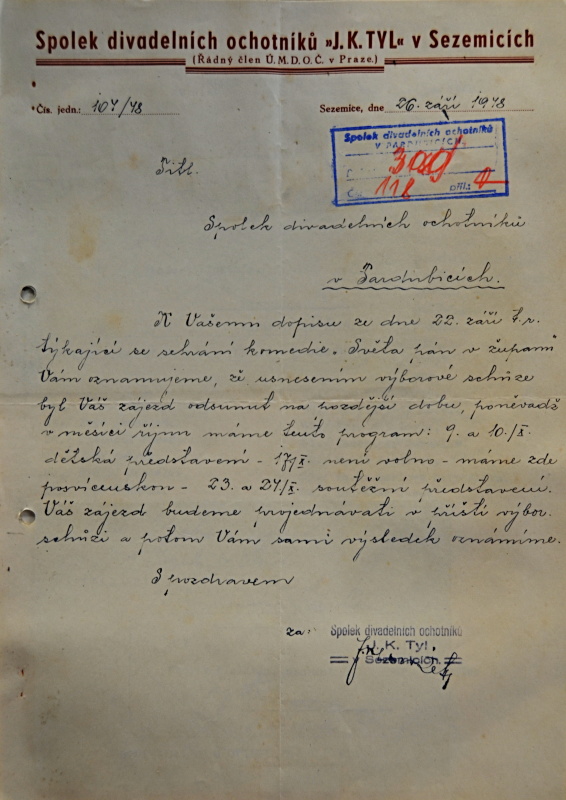 Spolek divadelních ochotníků »J. K. TYL« v Sezemicích
(Řádný člen Ú. M. D. O. Č. v Praze.)
Čís. jedn.: 107/48 Sezemice, dne 26. září 1948
Spolek divadelních ochotníků
V PARDUBICÍCH
309
Čís. 116 příl.:
Titl.
Spolek divadelních ochotníků
v Pardubicích.
K Vašemu dopisu ze dne 22. září t. r.
týkající se sehrání komedie. Světa pán v županu
Vám oznamujeme, že usnesením výborové schůze
byl Váš zájezd odsunut na pozdější dobu, poněvadž
v měsíci říjnu máme tento program: 9. a 10./X.
dětská představení - 17/X. není volno - máme zde
posvícenskou - 23. a 24/X. soutěžní představení.
Váš zájezd budeme projednávati v příští výbor.
schůzi a potom Vám sami výsledek oznámíme.
S pozdravem
za: Spolek divadelních ochotníků
J. K. Tyl,
Sezemicích.